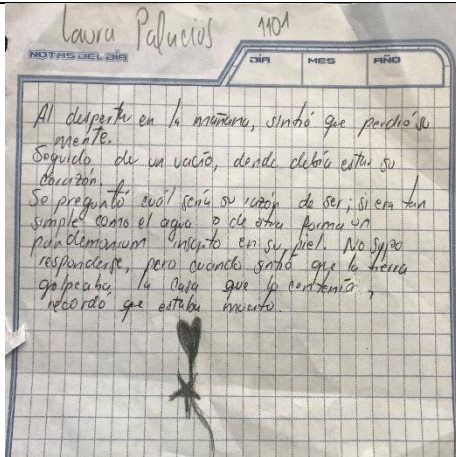 Laura Palacios 1101
NOTAS DEL DÍA DÍA MES AÑO
Al despertar en la mañana, sintió que perdió su
mente.
Seguido de un vacío, donde debía estar su
corazón.
Se preguntó cuál sería su razón de ser; si era tan
simple como el agua o de otra forma un
pandemonium inscrito en su piel. No supo
responderse, pero cuando sintió que la tierra
golpeaba la casa que lo contenía,
recordó que estaba muerto.